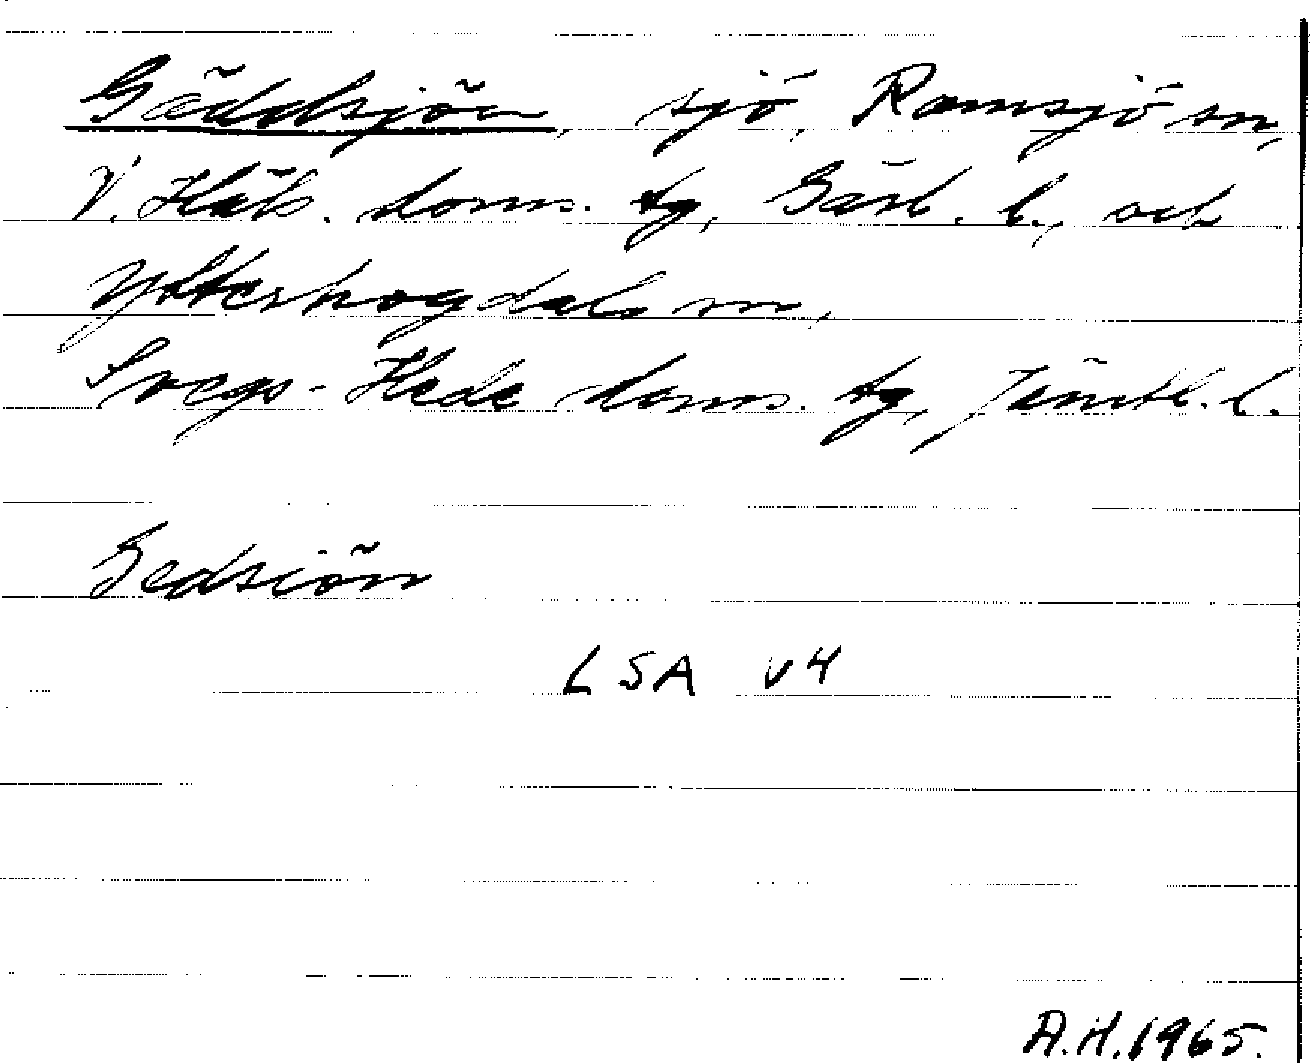 Gäddsjön, sjö, Ramsjö sn,
V. Häls. doms. tg, Gävl. l., och
Ytterhogdals sn,
Svegs-Hede doms. tg, Jämtl. l.
Gedsiön
LSA V4
A.H. 1965.